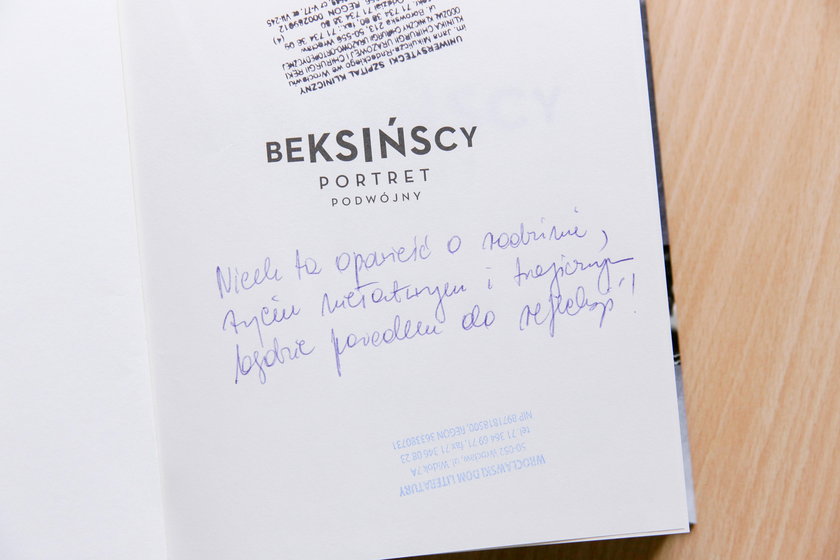 UNIWERSYTECKI SZPITAL KLINICZNY
im. Jana Mikulicza-Radeckiego we Wrocławiu
KLINIKA CHIRURGII URAZOWEJ I CHIRURGII RĘKI
ODDZIAŁ KLINICZNY CHIRURGII URAZOWO-ORTOPEDYCZNEJ
ul. Borowska 213, 50-556 Wrocław
71 734 38 00, fax: 71 734 38 09
REGON 000289012 (4)
BEKSIŃSCY
PORTRET
PODWÓJNY
Niech ta opowieść o rodzinie,
życiu niełatwym i tragicznym
będzie powodem do refleksji!
WROCŁAWSKI DOM LITERATURY
50-052 Wrocław, ul. Widok 7A
tel. 71 364 69 71, fax 71 346 08 23
NIP 8971818500, REGON 36330731